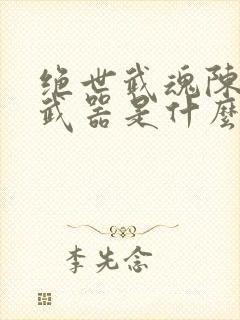 绝世武魂陈
武器是什麼
李先念